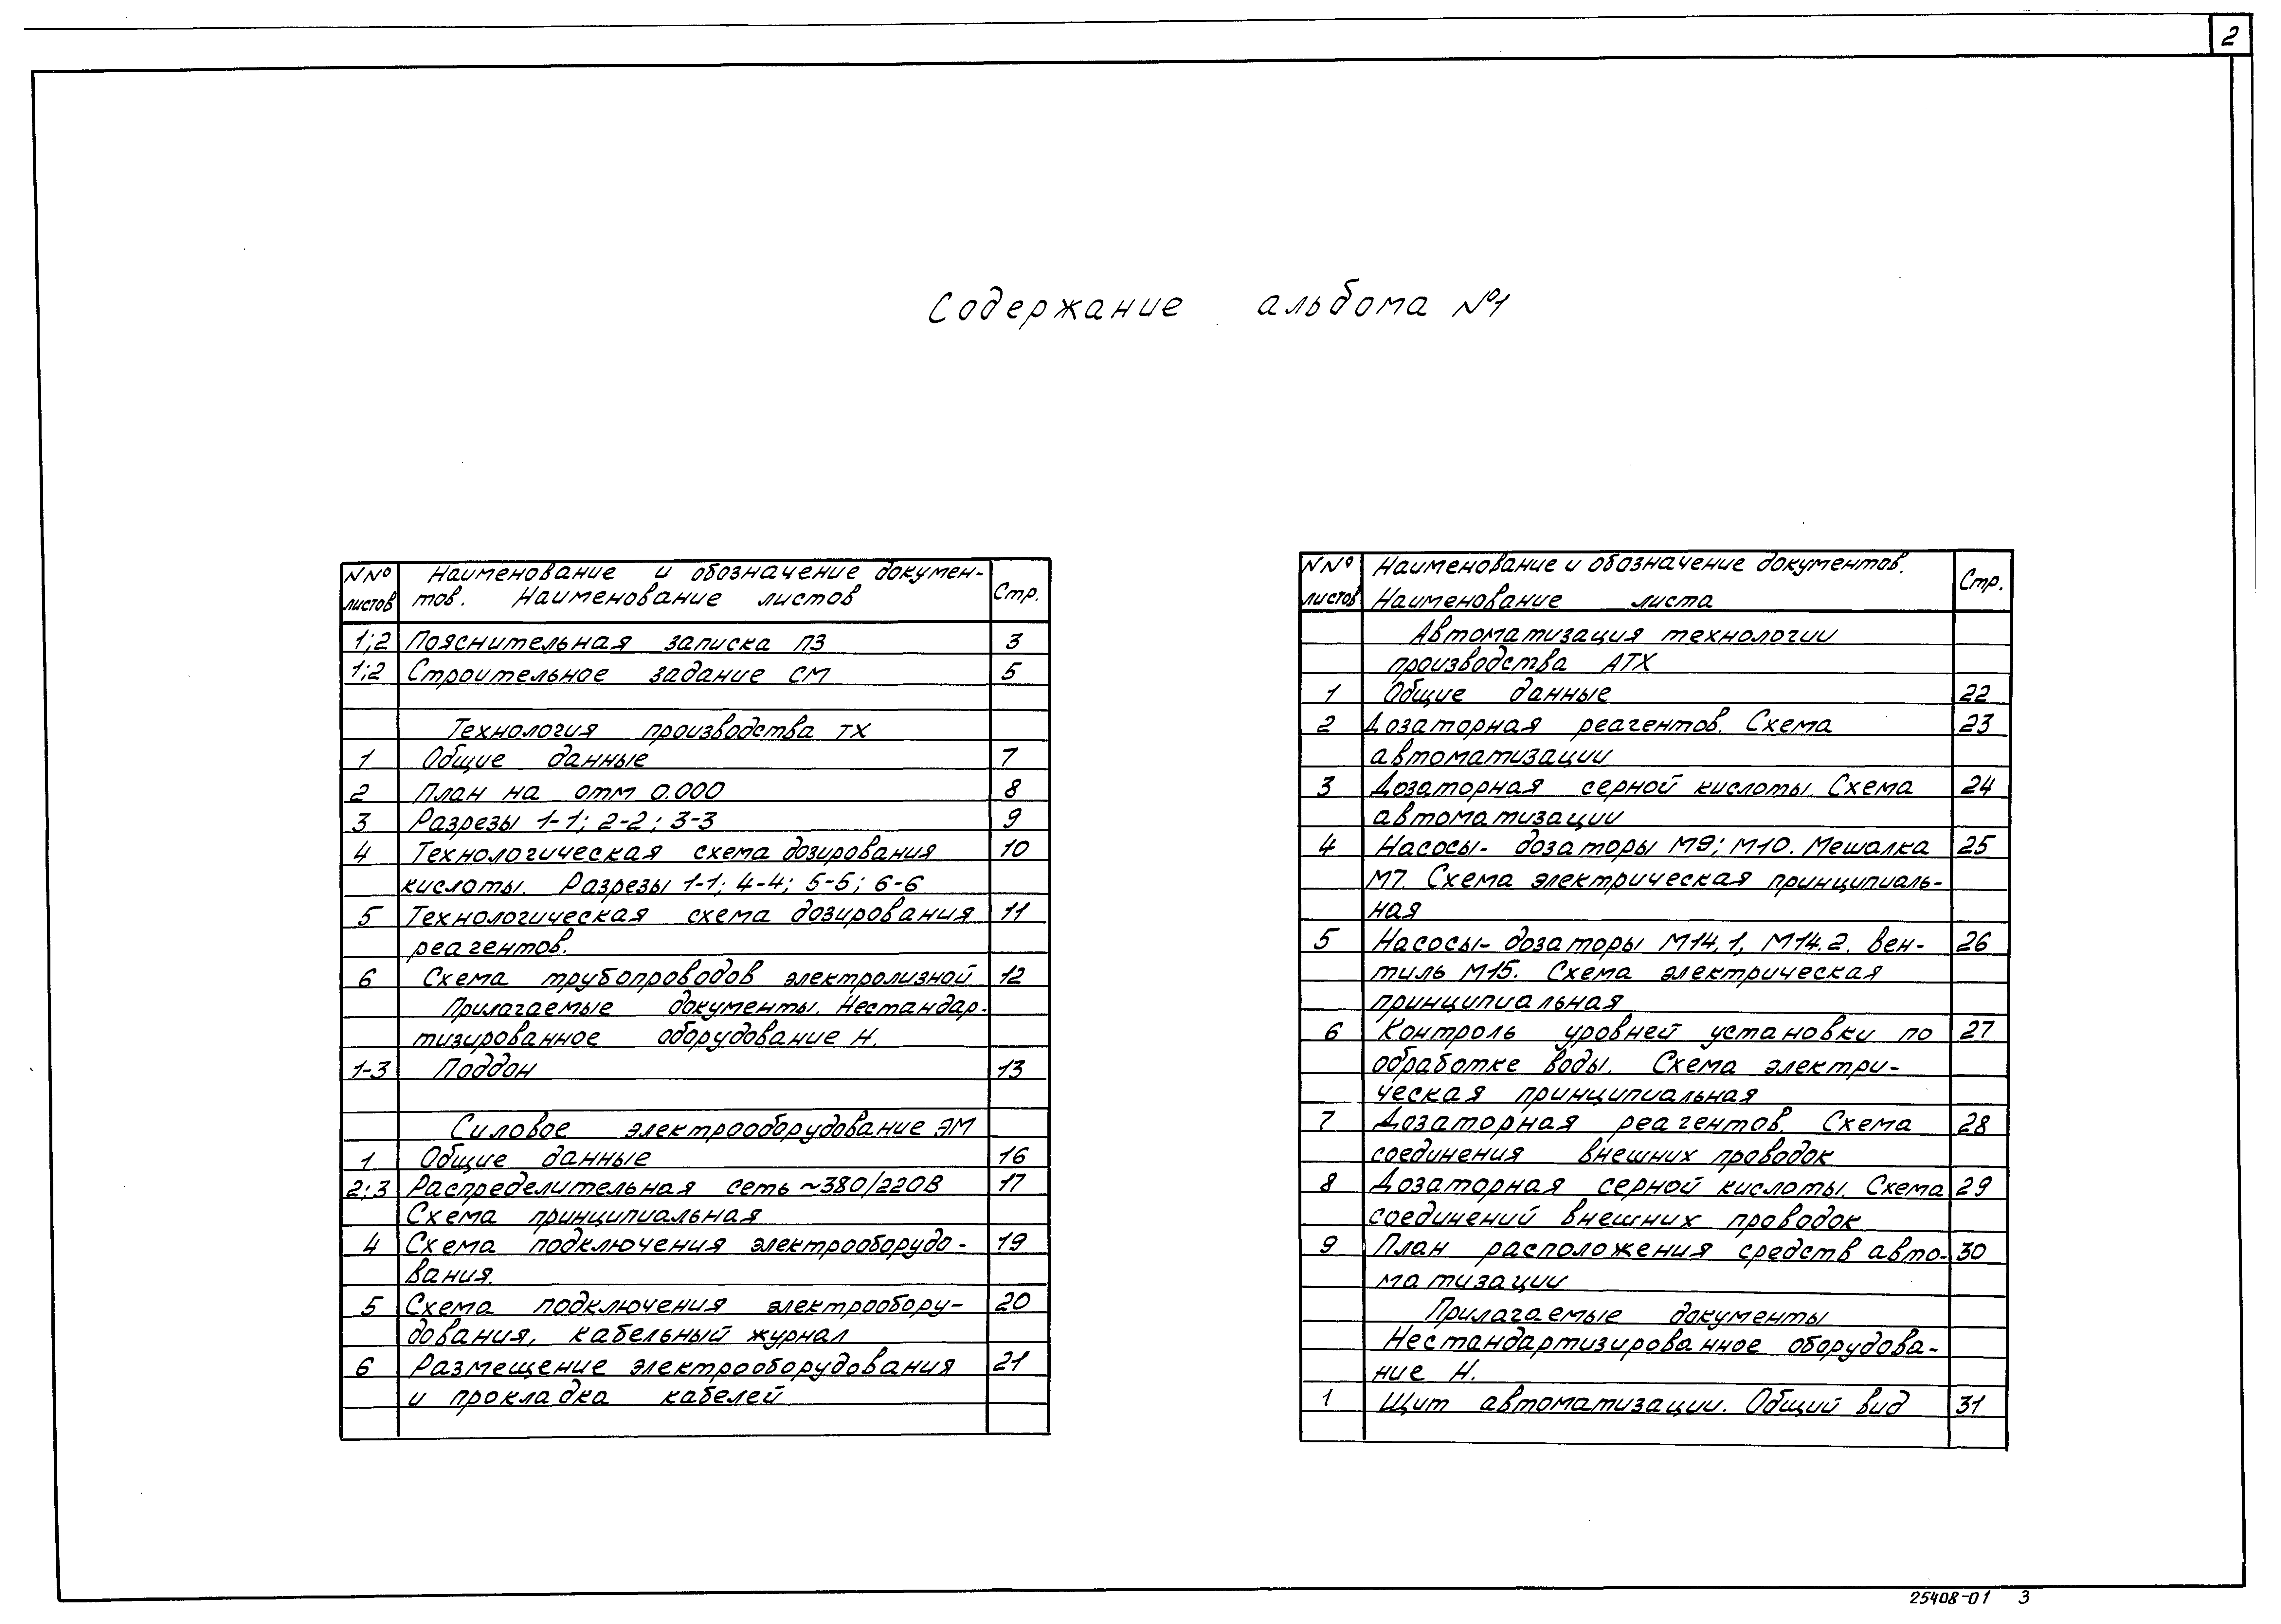 2
Содержание альбома №1
NNº листов
Наименование и обозначение докумен-
тов. Наименование листов
Стр.
1;2 Пояснительная записка ПЗ 3
1;2 Строительное задание СМ 5
Технология производства ТХ
1 Общие данные 7
2 План на отм 0.000 8
3 Разрезы 1-1; 2-2; 3-3 9
4 Технологическая схема дозирования 10
кислоты. Разрезы 1-1; 4-4; 5-5; 6-6
5 Технологическая схема дозирования 11
реагентов.
6 Схема трубопроводов электролизной 12
Прилагаемые документы. Нестандар-
тизированное оборудование Н.
1-3 Поддон 13
Силовое электрооборудование ЭМ
1 Общие данные 16
2;3 Распределительная сеть ~380/220В 17
Схема принципиальная
4 Схема подключения электрооборудо- 19
вания.
5 Схема подключения электрообору- 20
дования, кабельный журнал
6 Размещение электрооборудования 21
и прокладка кабелей
NNº листов
Наименование и обозначение документов.
Наименование листа
Стр.
Автоматизация технологии
производства АТХ
1 Общие данные 22
2 Дозаторная реагентов. Схема 23
автоматизации
3 Дозаторная серной кислоты. Схема 24
автоматизации
4 Насосы-дозаторы М9; М10. Мешалка 25
М7. Схема электрическая принципиаль-
ная
5 Насосы-дозаторы М14.1, М14.2. Вен- 26
тиль М15. Схема электрическая
принципиальная
6 Контроль уровней установки по 27
обработке воды. Схема электри-
ческая принципиальная
7 Дозаторная реагентов. Схема 28
соединения внешних проводок
8 Дозаторная серной кислоты. Схема 29
соединений внешних проводок
9 План расположения средств авто- 30
матизации
Прилагаемые документы
Нестандартизированное оборудова-
ние Н.
1 Щит автоматизации. Общий вид 31
25408-01 3